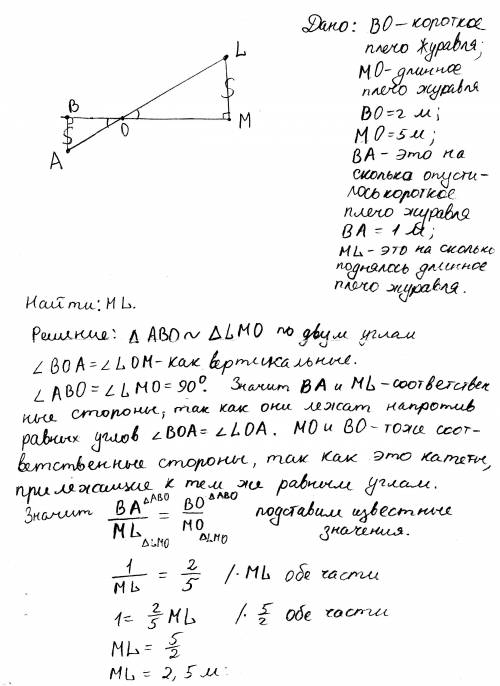 L
B
S
O
M
S
A
Дано: BO - короткое
плечо журавля;
MO - длинное
плечо журавля
BO = 2 м;
MO = 5 м;
BA - это на
сколька опусти-
лось короткое
плечо журавля
BA = 1 м;
ML - это на сколько
поднялось длинное
плечо журавля.
Найти: ML.
Решение: △ ABO ~ △LMO по двум углам
∠BOA = ∠LOM - как вертикальные.
∠ABO = ∠LMO = 90°. Значит BA и ML - соответствен
ные стороны, так как они лежат напротив
равных углов ∠BOA = ∠LOA. MO и BO - тоже соот-
ветственные стороны, так как это катеты,
прилежащие к тем же равным углам.
Значит BA △ABO / ML △LMO = BO △ABO / MO △LMO подставим известные
значения.
1/ML = 2/5 /· ML обе части
1 = 2/5 ML /· 5/2 обе части
ML = 5/2
ML = 2,5 м.